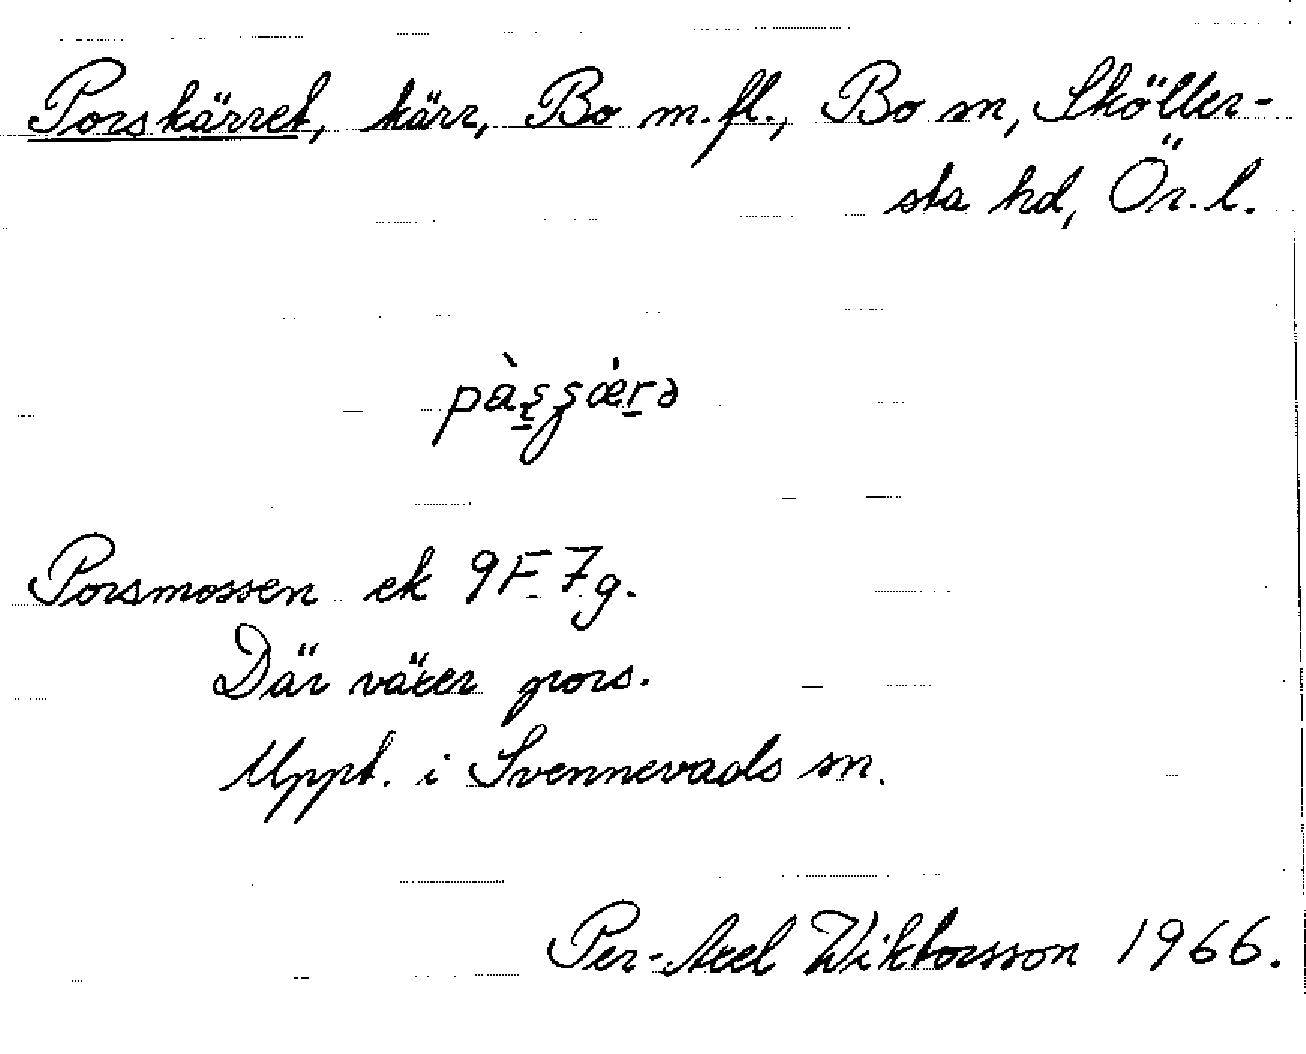 Porskärret, kärr, Bo m.fl., Bo sn, Sköller-
sta hd, Ör. l.
pàʂʂæ̀r̠ə
Porsmossen ek 9F 7g.
Där växer pors.
Uppt. i Svennevads sn.
Per-Axel Wiktorsson 1966.